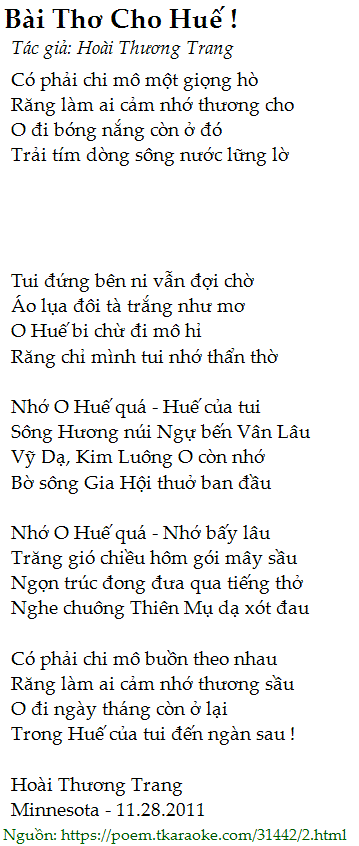 Bài Thơ Cho Huế !
Tác giả: Hoài Thương Trang
Có phải chi mô một giọng hò
Răng làm ai cảm nhớ thương cho
O đi bóng nắng còn ở đó
Trải tím dòng sông nước lững lờ
Tui đứng bên ni vẫn đợi chờ
Áo lụa đôi tà trắng như mơ
O Huế bi chừ đi mô hỉ
Răng chỉ mình tui nhớ thẩn thờ
Nhớ O Huế quá - Huế của tui
Sông Hương núi Ngự bến Vân Lâu
Vỹ Dạ, Kim Luông O còn nhớ
Bờ sông Gia Hội thuở ban đầu
Nhớ O Huế quá - Nhớ bấy lâu
Trăng gió chiều hôm gói mây sầu
Ngọn trúc đong đưa qua tiếng thở
Nghe chuông Thiên Mụ dạ xót đau
Có phải chi mô buồn theo nhau
Răng làm ai cảm nhớ thương sầu
O đi ngày tháng còn ở lại
Trong Huế của tui đến ngàn sau !
Hoài Thương Trang
Minnesota - 11.28.2011
Nguồn: https://poem.tkaraoke.com/31442/2.html